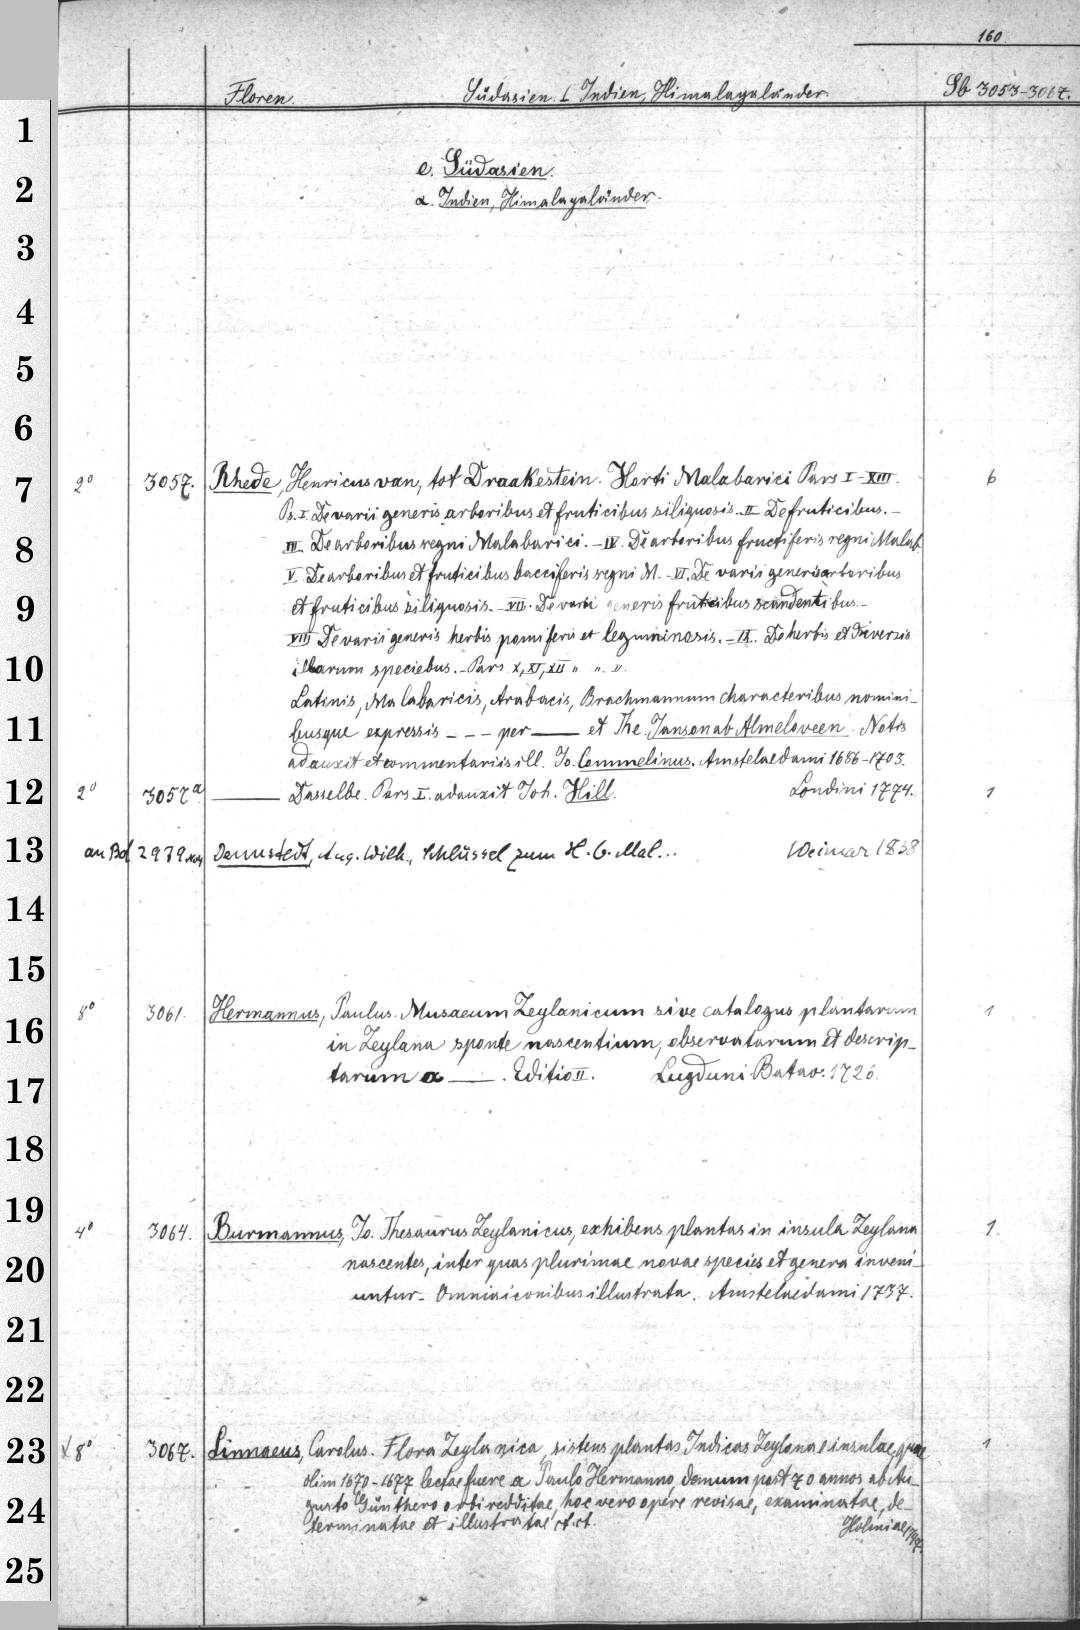 160.
Floren. Südasien. I Indien, Himalayaländer. Sb 3053-3067.
e. Südasien.
α. Indien, Himalayaländer.
2° 3057. Rhede, Henricus van, tot Draakestein. Horti Malabarici Pars I-XIII. 6
Ps. I. De varii generis arboribus et fruticibus siliquosis. II De fruticibus.-
III. De arboribus regni Malabarici.-IV. De arboribus fructiferis regni Malab.
V. De arboribus et fruticibus bacciferis regni M.-VI. De varii generis arboribus
et fruticibus siliquosis.-VII. De varii generis fruticibus scandentibus.-
VIII De varii generis herbis pomiferis et leguminosis.-IX. De herbis et diversis
illarum speciebus.-Pars X, XI, XII " " ".
Latinis, Malabaricis, Arabacis, Brachmannum characteribus nomini-
busque expressis - - - per —— et The. Janson ab Almeloveen. Notis
adauxit et commentariis ill. Jo. Commelinus. Amstelaedami 1686-1703.
2° 3057a. —— Dasselbe. Pars I. adauxit Joh. Hill. Londini 1774. 1
an Bot 2979 Dennstedt, Aug. Wilh., Schlüssel zum H. I. Mal... Weimar 1838
8° 3061. Hermannus, Paulus. Musaeum Zeylanicum sive catalogus plantarum 1
in Zeylana sponte nascentium, observatarum et descrip-
tarum a ——. Editio II. Lugduni Batav. 1726.
4° 3064. Burmannus, Jo. Thesaurus Zeylanicus, exhibens plantas in insula Zeylana 1.
nascentes, inter quas plurimae novae species et genera inveni-
untur. Omnia iconibus illustrata. Amstelaedami 1737.
8° 3067. Linnaeus, Carolus. Flora Zeylanica, sistens plantas Indicas Zeylonae insulae, quae 1
olim 1670-1677 lectae fuere a Paulo Hermanno, demum post 70 annos ab Au-
gusto Günthero orbi redditae, hoc vero opere revisae, examinatae, de-
terminatae et illustratae ct. ct. Holmiae 1747.
1
2
3
4
5
6
7
8
9
10
11
12
13
14
15
16
17
18
19
20
21
22
23
24
25